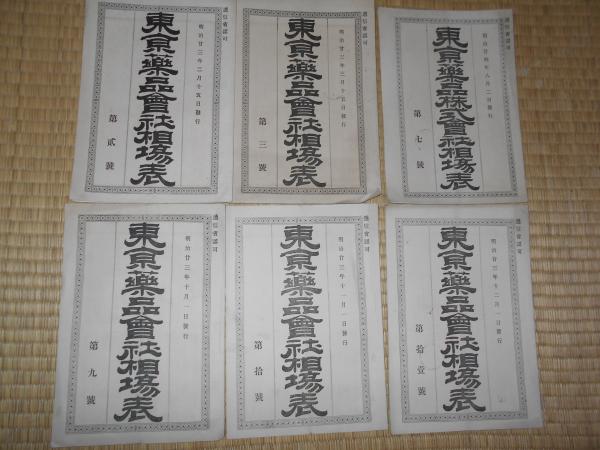 遞信省認可
明治廿三年二月十五日發行
東京藥品會社相塲表
第貳號
遞信省認可
明治廿三年三月十五日發行
東京藥品會社相塲表
第三號
遞信省認可
明治廿四年八月二日發行
東京藥品株式會社相塲表
第七號
遞信省認可
明治廿三年十月一日發行
東京藥品會社相塲表
第九號
遞信省認可
明治廿三年十一月一日發行
東京藥品會社相塲表
第拾號
遞信省認可
明治廿三年十二月一日發行
東京藥品會社相塲表
第拾壹號